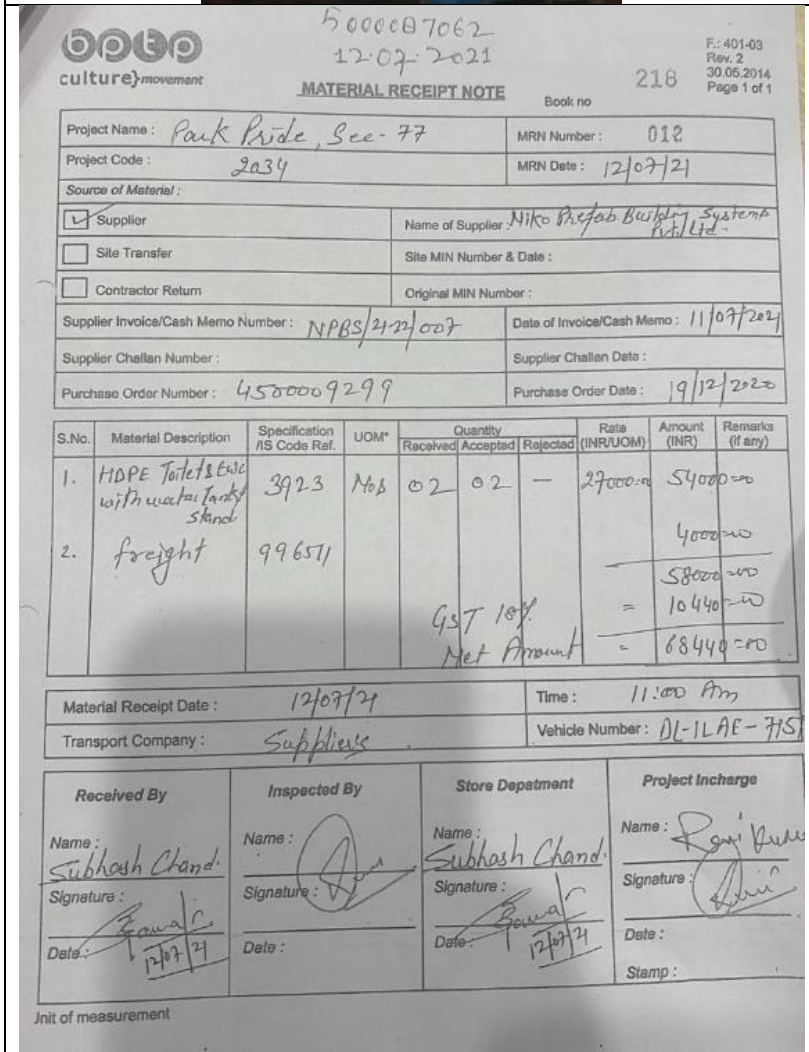 5000087062
12.07.2021
bptp
culture}movement
F.: 401-03
Rev. 2
30.05.2014
Page 1 of 1
MATERIAL RECEIPT NOTE
Book no 218
Project Name : Park Pride, Sec-77
MRN Number : 012
Project Code : 2034
MRN Date : 12/07/21
Source of Material :
Supplier
Name of Supplier : Niko Prefab Building Systems Pvt Ltd-
Site Transfer
Site MIN Number & Date :
Contractor Return
Original MIN Number :
Supplier Invoice/Cash Memo Number : NPBS/21-22/007
Date of Invoice/Cash Memo : 11/07/2021
Supplier Challan Number :
Supplier Challan Date :
Purchase Order Number : 4500009299
Purchase Order Date : 19/12/2020
S.No. Material Description Specification /IS Code Ref. UOM* Quantity Rate (INR/UOM) Amount (INR) Remarks (if any)
Received Accepted Rejected
1. HDPE Toilets EWC 3923 Nos 02 02 — 27000=00 54000=00
with water Tank &
Stand
4000=00
2. freight 996511
58000=00
GST 18% = 10440=00
Net Amount = 68440=00
Material Receipt Date : 12/07/21
Time : 11:00 Am
Transport Company : Supplier's
Vehicle Number : DL-1LAE-7151
Received By Inspected By Store Depatment Project Incharge
Name : Subhash Chand.
Signature :
Date : 12/07/21
Name :
Signature :
Date :
Name : Subhash Chand.
Signature :
Date : 12/07/21
Name : Ravi Kumar
Signature :
Date :
Stamp :
Unit of measurement